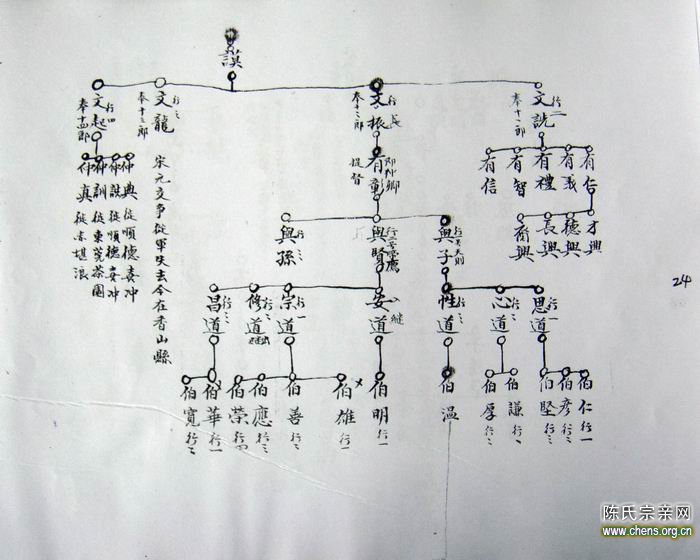 謨
文詵 行二
奉十一郎
文振 行長
奉十二郎
文龍 行三
奉十三郎
宋元交爭從軍失去今在香山縣
文起 行四
奉十四郎
有仁
有義
有禮
有智
有信
有彰 即仲卿
提督
仲典 從順德壴冲
仲謀 從順德壴冲
仲訓 從東莞茶園
仲真 從赤堪浪
才興
德興
長興
裔興
與子
與賢
與孫 行三
思道 行一
心道 行二
性道 行三
安道
宗道 行一
修道 行二
昌道 行三
伯仁 行一
伯彥 行二
伯堅 行三
伯謙 行一
伯厚 行二
伯溫
伯明 行一
伯雄 行一
伯善 行二
伯應 行三
伯榮 行四
伯華 行一
伯寬 行二
24
陈氏宗亲网
www.chens.org.cn